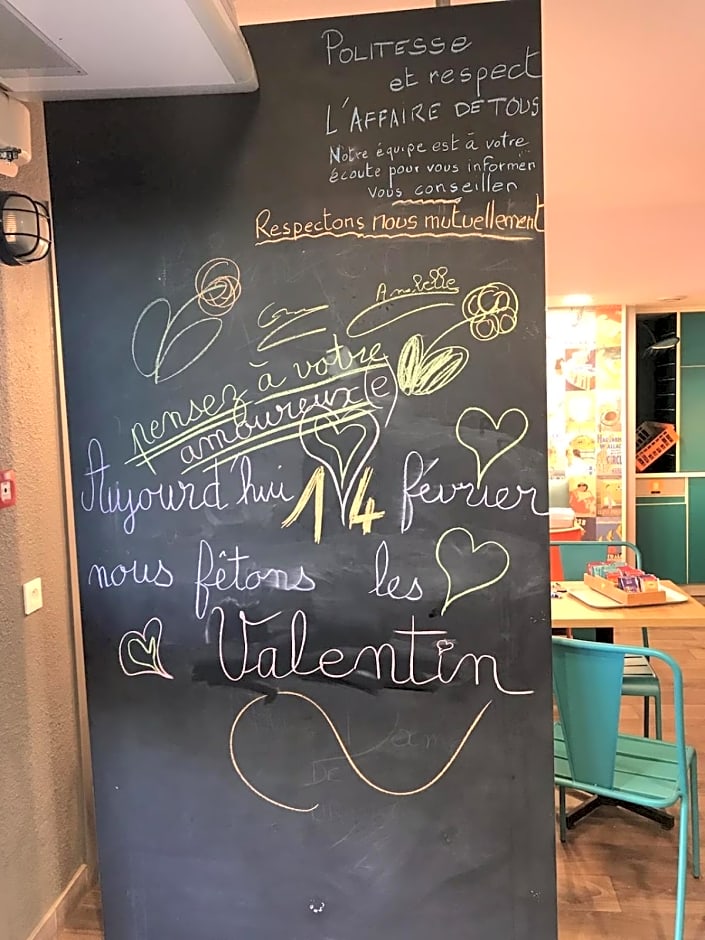 POLITESSE
et respect
L'AFFAIRE DE TOUS
Notre équipe est à votre
écoute pour vous informer
vous conseiller
Respectons nous mutuellement
pensez à votre
amoureux(e)
Aujourd'hui 14 février
nous fêtons les
Valentin
DE